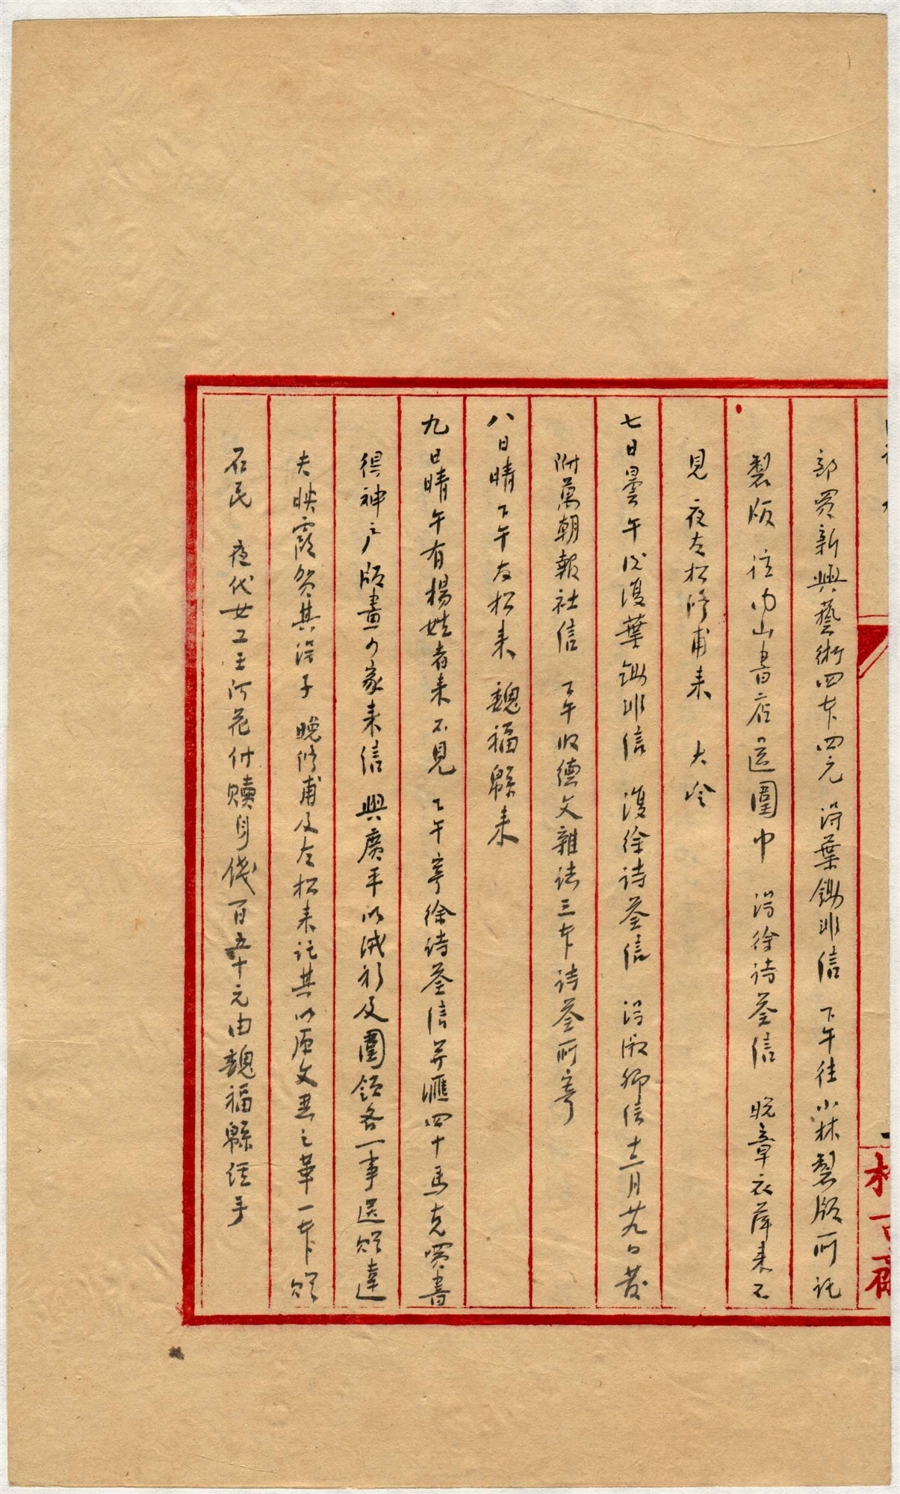 部買新興藝術四本四元 得葉鋤非信 下午往小林製版所託
製版 往内山書店還圍巾 得徐詩荃信 晚章衣萍来不
見 夜友松修甫来 大冷
七日曇午后復葉鋤非信 復徐詩荃信 得淑卿信十二月廿九日發
附萬朝報社信 下午收德文雜誌三本詩荃所寄
八日晴下午友松来 魏福緜来
九日晴午有楊姓者来不見 下午寄徐詩荃信并匯四十馬克買書
得神户版畫の家来信 與廣平以絨衫及圍領各一事送贈達
夫映霞賀其得子 晚修甫及友松来託其以原文恶之華一本贈
石民 夜代女工王阿花付贖身錢百五十元由魏福緜經手